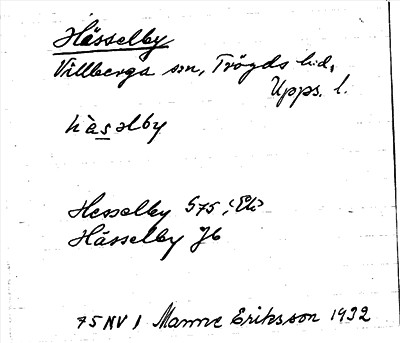 Hässelby
Villberga sn, Trögds hd,
Upps. l.
hàsəlby
Hesselby 575; Ek
Hässelby Jb
75 NV 1 Manne Eriksson 1932